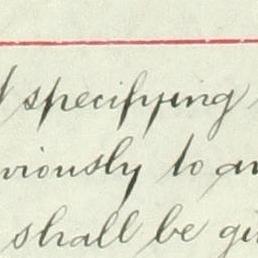 specifying
viously to
shall be